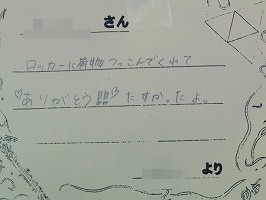 さん
ロッカーに荷物つっこんでくれて
♡ありがとう♡たすかったよ。
より